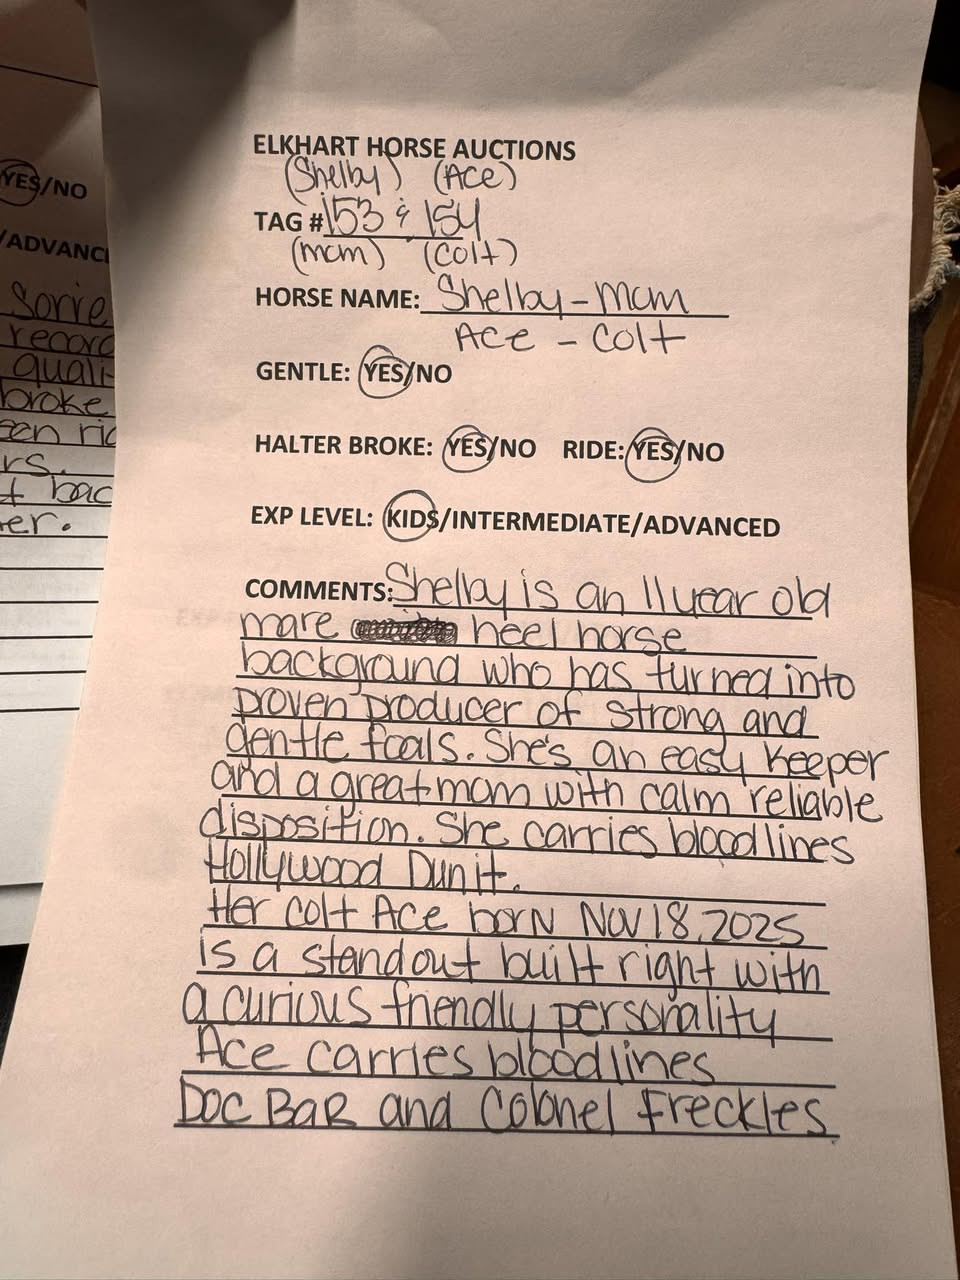 ELKHART HORSE AUCTIONS
(Shelby) (ACE)
TAG # 153 & 154
(mom) (Colt)
HORSE NAME: Shelby - Mom
ACE - Colt
GENTLE: YES/NO
HALTER BROKE: YES/NO RIDE: YES/NO
EXP LEVEL: KIDS/INTERMEDIATE/ADVANCED
COMMENTS: Shelby is an 11 year old
mare heel horse
background who has turned into
proven producer of strong and
gentle foals. She's an easy keeper
and a great mom with calm reliable
disposition. She carries bloodlines
Hollywood Dunit.
Her colt Ace born Nov 18, 2025
is a standout built right with
a curious friendly personality
Ace carries bloodlines
Doc Bar and Colonel Freckles
YES/NO
/ADVANC
Sorre
record
quali
broke
een rid
rs.
t bac
er.